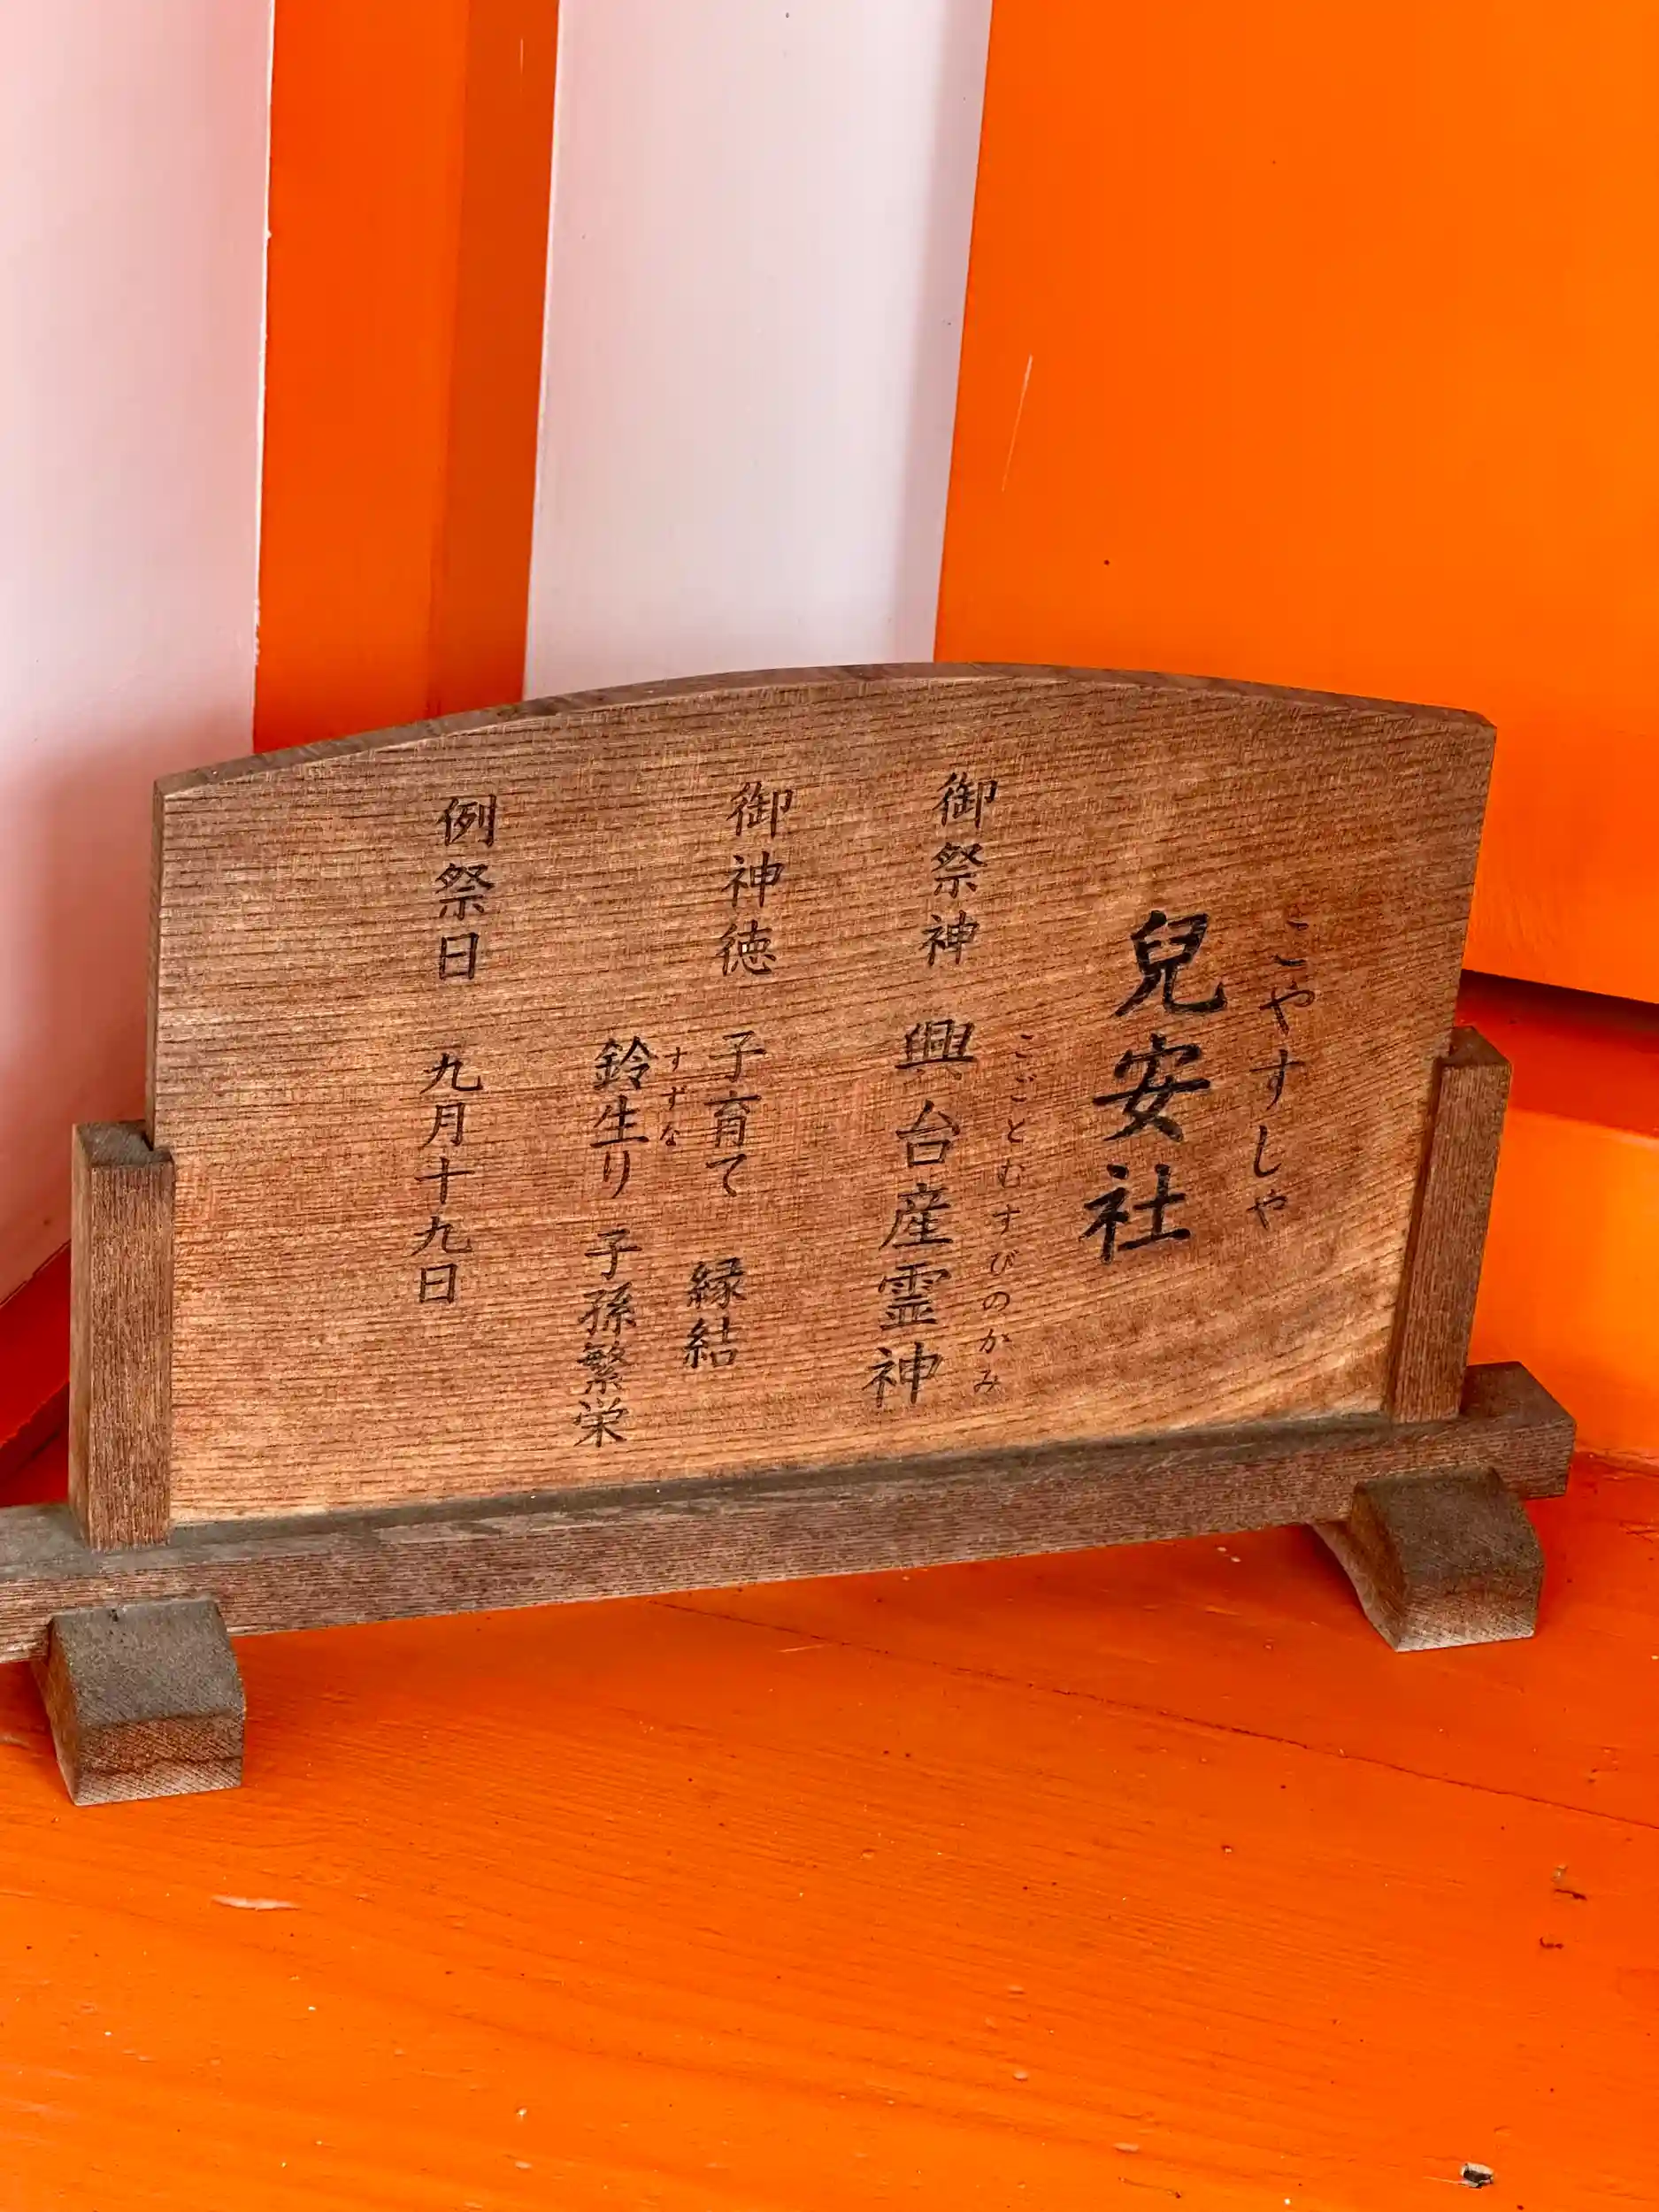 こやすしや
兒安社
こごとむすびのかみ
御祭神 興台産霊神
御神徳 子育て 縁結
すずな
鈴生り 子孫繁栄
例祭日 九月十九日